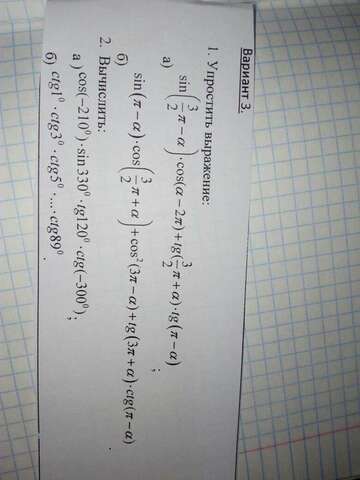 Вариант 3.
1. Упростить выражение:
а) sin(3/2 π − α)·cos(α − 2π) + tg(3/2 π + α)·tg(π − α);
б) sin(π − α)·cos(3/2 π + α) + cos²(3π − α) + tg(3π + α)·ctg(π − α).
2. Вычислить:
а) cos(−210⁰)·sin 330⁰·tg120⁰·ctg(−300⁰);
б) ctg1⁰·ctg3⁰·ctg5⁰·...·ctg89⁰.